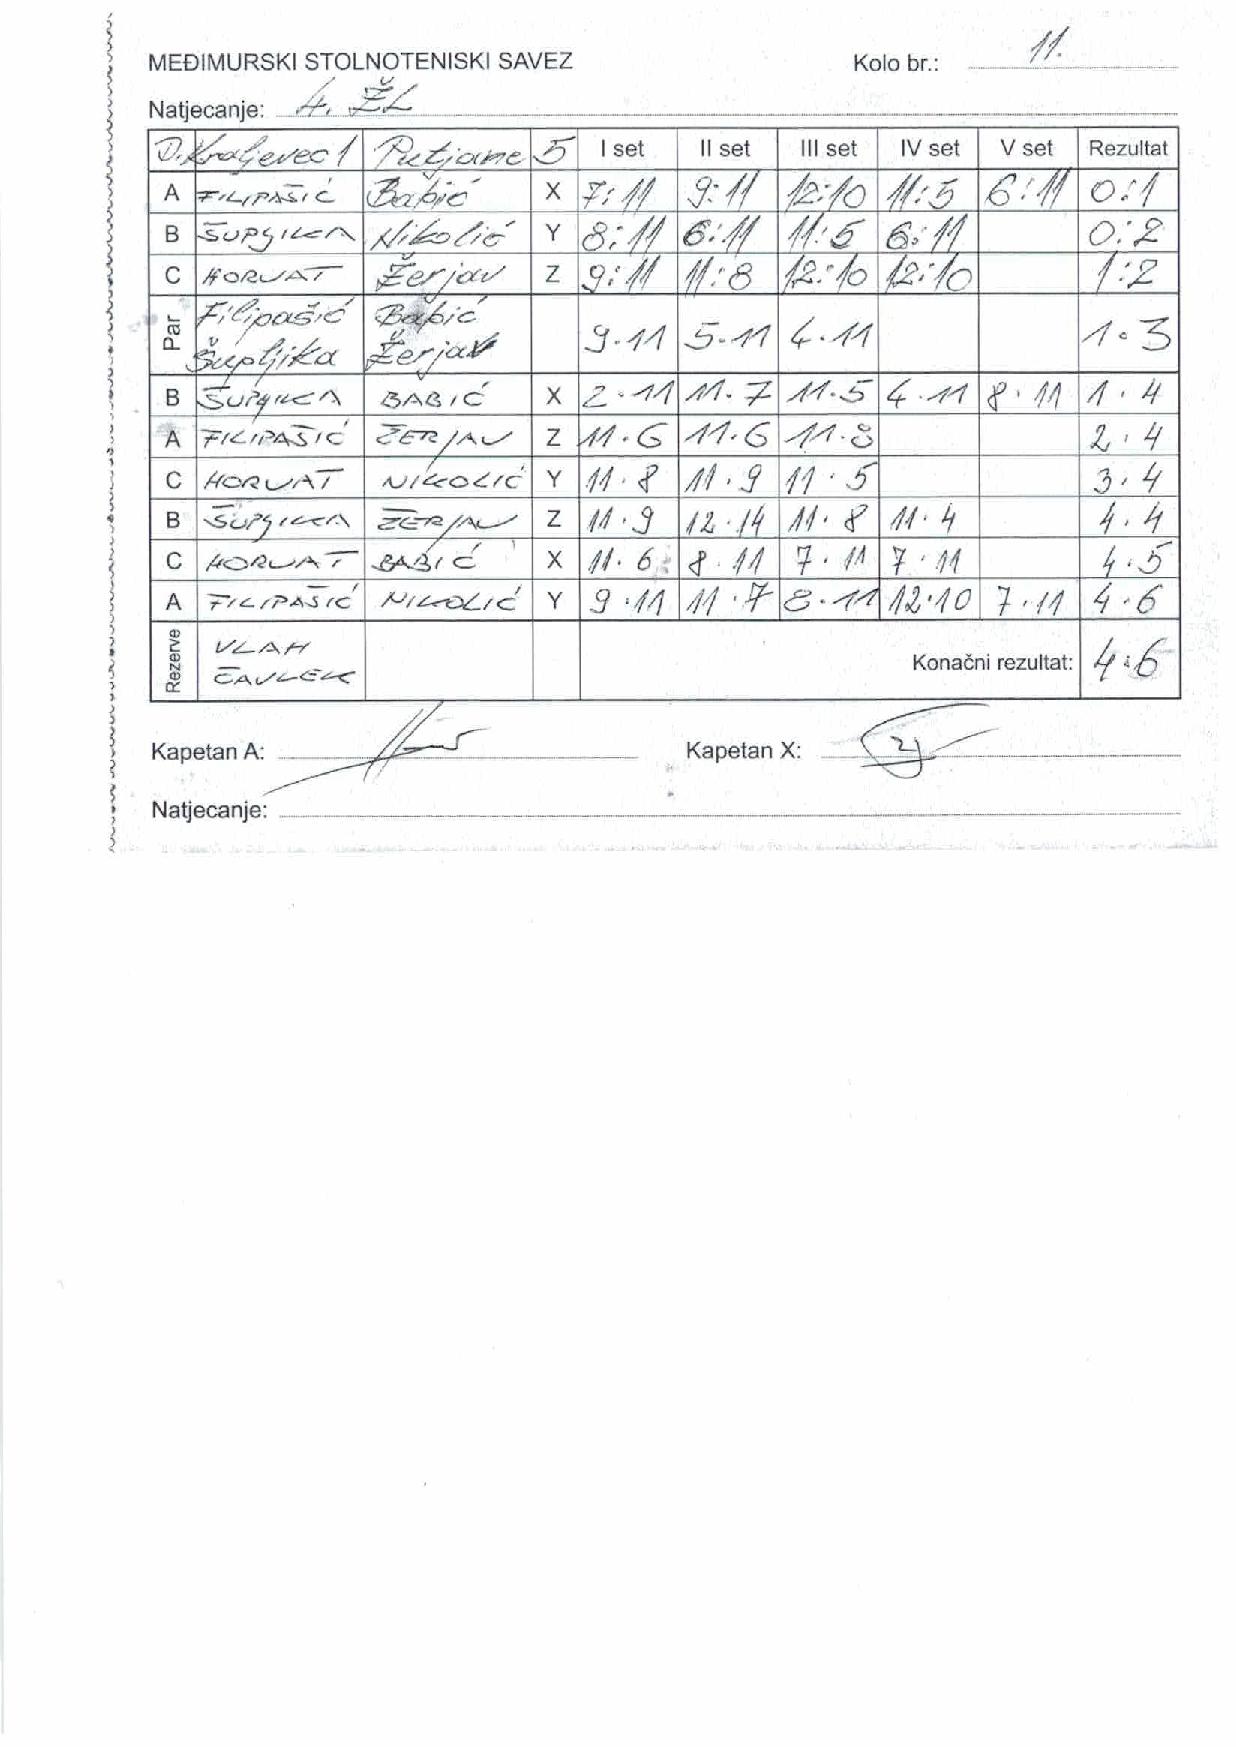 MEĐIMURSKI STOLNOTENISKI SAVEZ Kolo br.: 11.
Natjecanje: 4. ŽL
D. Kraljevec 1 Putjane 5 I set II set III set IV set V set Rezultat
A FILIPAŠIĆ Babić X 7:11 9:11 12:10 11:5 6:11 0:1
B ŠUPLJIKA Nikolić Y 8:11 6:11 11:5 6:11 0:2
C HORVAT Žerjav Z 9:11 11:8 12:10 12:10 1:2
Par Filipašić Babić
Šupljika Žerjav 9.11 5.11 4.11 1.3
B ŠUPLJIKA BABIĆ X 2.11 11.7 11.5 4.11 8.11 1.4
A FILIPAŠIĆ ŽERJAV Z 11.6 11.6 11.8 2.4
C HORVAT NIKOLIĆ Y 11.8 11.9 11.5 3.4
B ŠUPLJIKA ŽERJAV Z 11.9 12.14 11.8 11.4 4.4
C HORVAT BABIĆ X 11.6 8.11 7.11 7.11 4.5
A FILIPAŠIĆ NIKOLIĆ Y 9.11 11.7 8.11 12.10 7.11 4.6
Rezerve VLAH
ČAVLEK Konačni rezultat: 4:6
Kapetan A: Kapetan X:
Natjecanje: